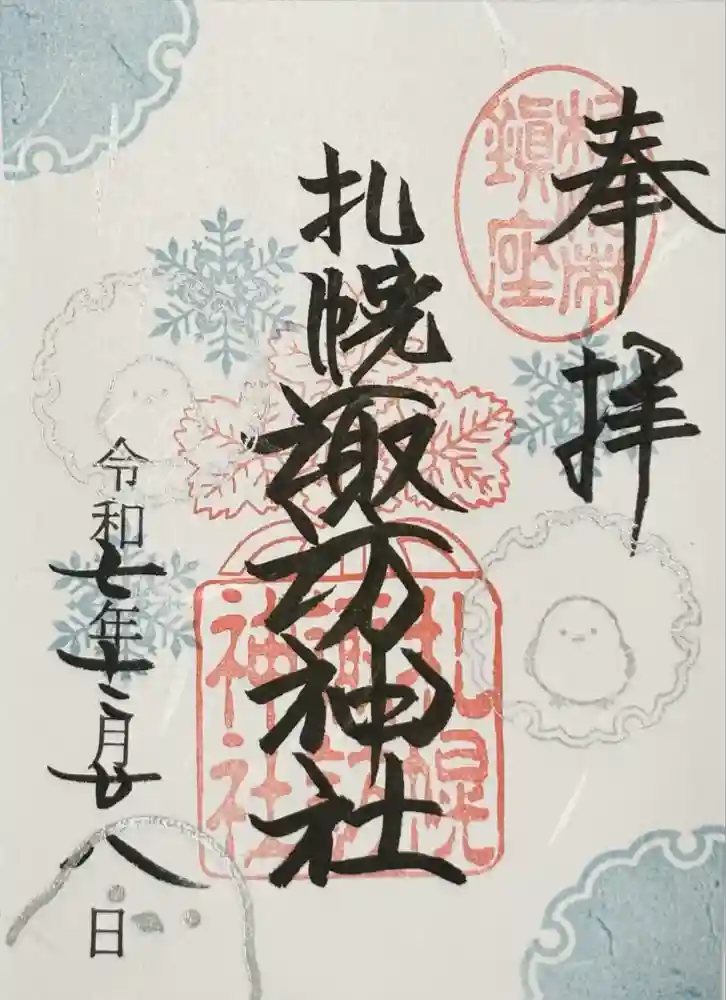 奉拝
札幌市
鎮座
札幌諏訪神社
札幌
諏訪
神社
令和七年十二月廿八日